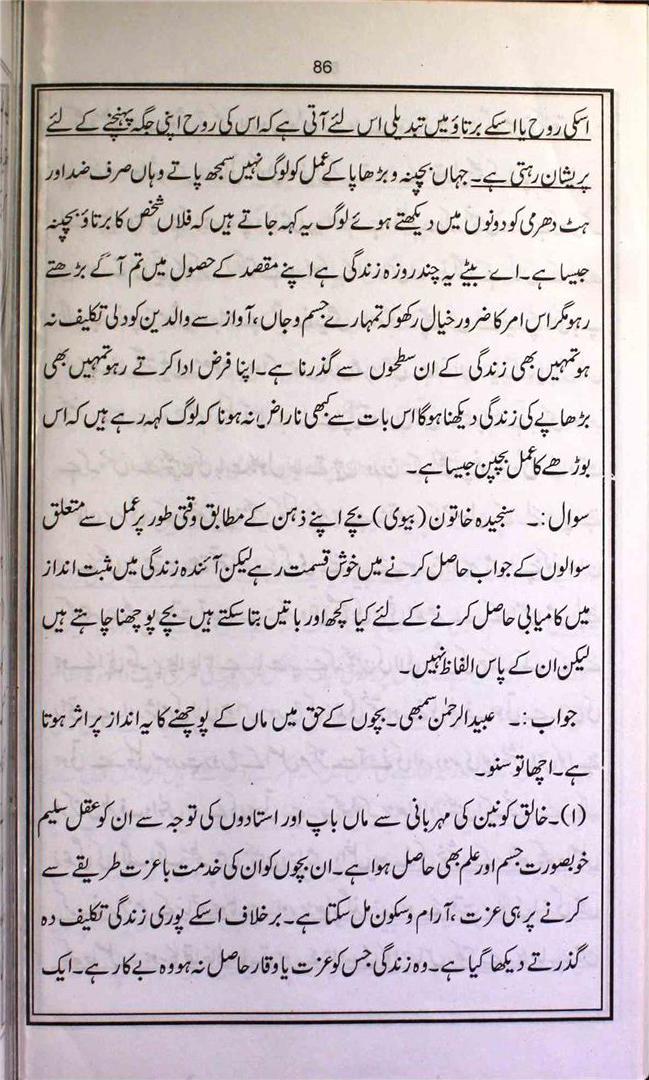 86
اسکی روح یا اسکے برتاؤ میں تبدیلی اس لئے آتی ہے کہ اس کی روح اپنی جگہ پہنچنے کے لئے
پریشان رہتی ہے۔ جہاں بچپنہ و بڑھاپا کے عمل کو لوگ نہیں سمجھ پاتے وہاں صرف ضد اور
ہٹ دھرمی کو دونوں میں دیکھتے ہوئے لوگ یہ کہہ جاتے ہیں کہ فلاں شخص کا برتاؤ بچپنہ
جیسا ہے۔ اے بیٹے یہ چند روزہ زندگی ہے اپنے مقصد کے حصول میں تم آگے بڑھتے
رہو مگر اس امر کا ضرور خیال رکھو کہ تمہارے جسم و جاں، آواز سے والدین کو دلی تکلیف نہ
ہو تمہیں بھی زندگی کے ان سطحوں سے گذرنا ہے۔ اپنا فرض ادا کرتے رہو تمہیں بھی
بڑھاپے کی زندگی دیکھنا ہوگا اس بات سے کبھی ناراض نہ ہونا کہ لوگ کہہ رہے ہیں کہ اس
بوڑھے کا عمل بچپن جیسا ہے۔
سوال :۔ سنجیدہ خاتون (بیوی) بچے اپنے ذہن کے مطابق وقتی طور پر عمل سے متعلق
سوالوں کے جواب حاصل کرنے میں خوش قسمت رہے لیکن آئندہ زندگی میں مثبت انداز
میں کامیابی حاصل کرنے کے لئے کیا کچھ اور باتیں بتا سکتے ہیں بچے پوچھنا چاہتے ہیں
لیکن ان کے پاس الفاظ نہیں۔
جواب :۔ عبید الرحمٰن سمبھی۔ بچوں کے حق میں ماں کے پوچھنے کا یہ انداز پر اثر ہوتا
ہے۔ اچھا تو سنو۔
(۱)۔ خالق کونین کی مہربانی سے ماں باپ اور استادوں کی توجہ سے ان کو عقل سلیم
خوبصورت جسم اور علم بھی حاصل ہوا ہے۔ ان بچوں کو ان کی خدمت با عزت طریقے سے
کرنے پر ہی عزت، آرام و سکون مل سکتا ہے۔ برخلاف اسکے پوری زندگی تکلیف دہ
گذرتے دیکھا گیا ہے۔ وہ زندگی جس کو عزت یا وقار حاصل نہ ہو وہ بے کار ہے۔ ایک